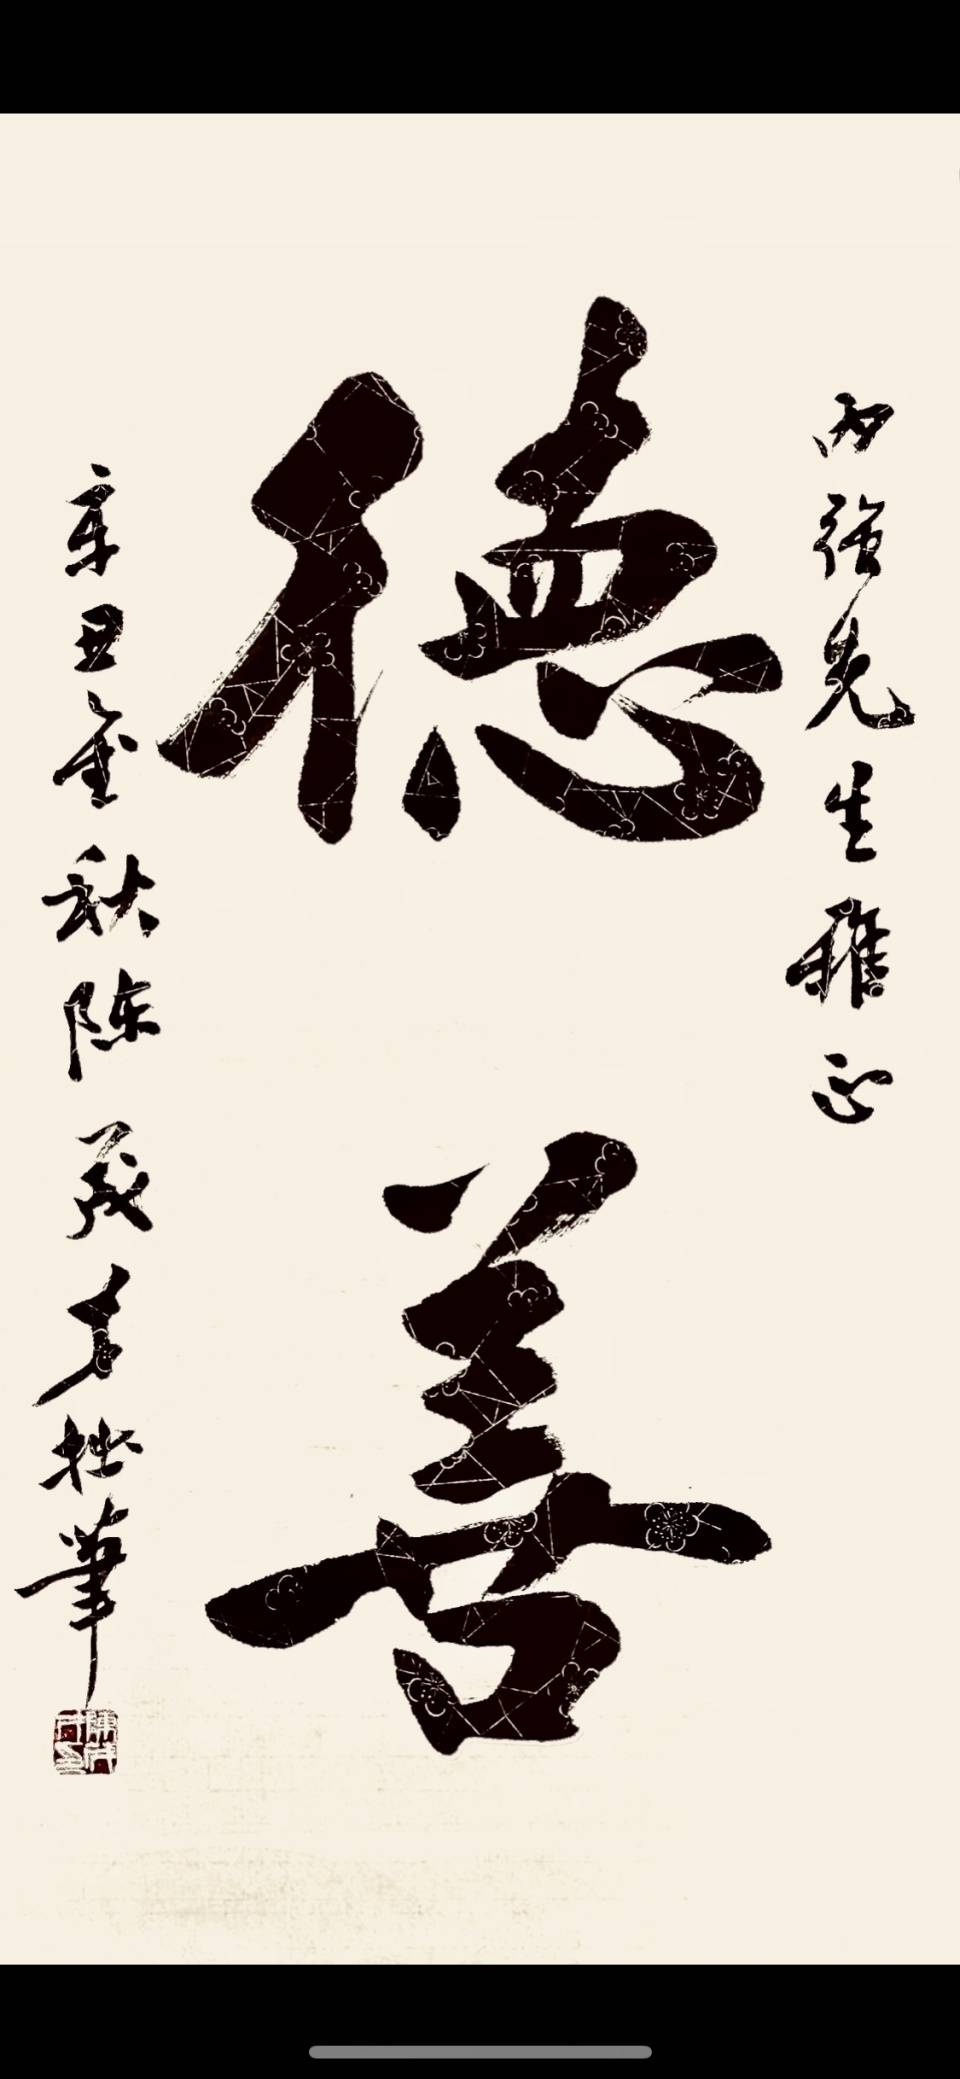 丙強先生雅正
德善
辛丑金秋陈茂才拙筆